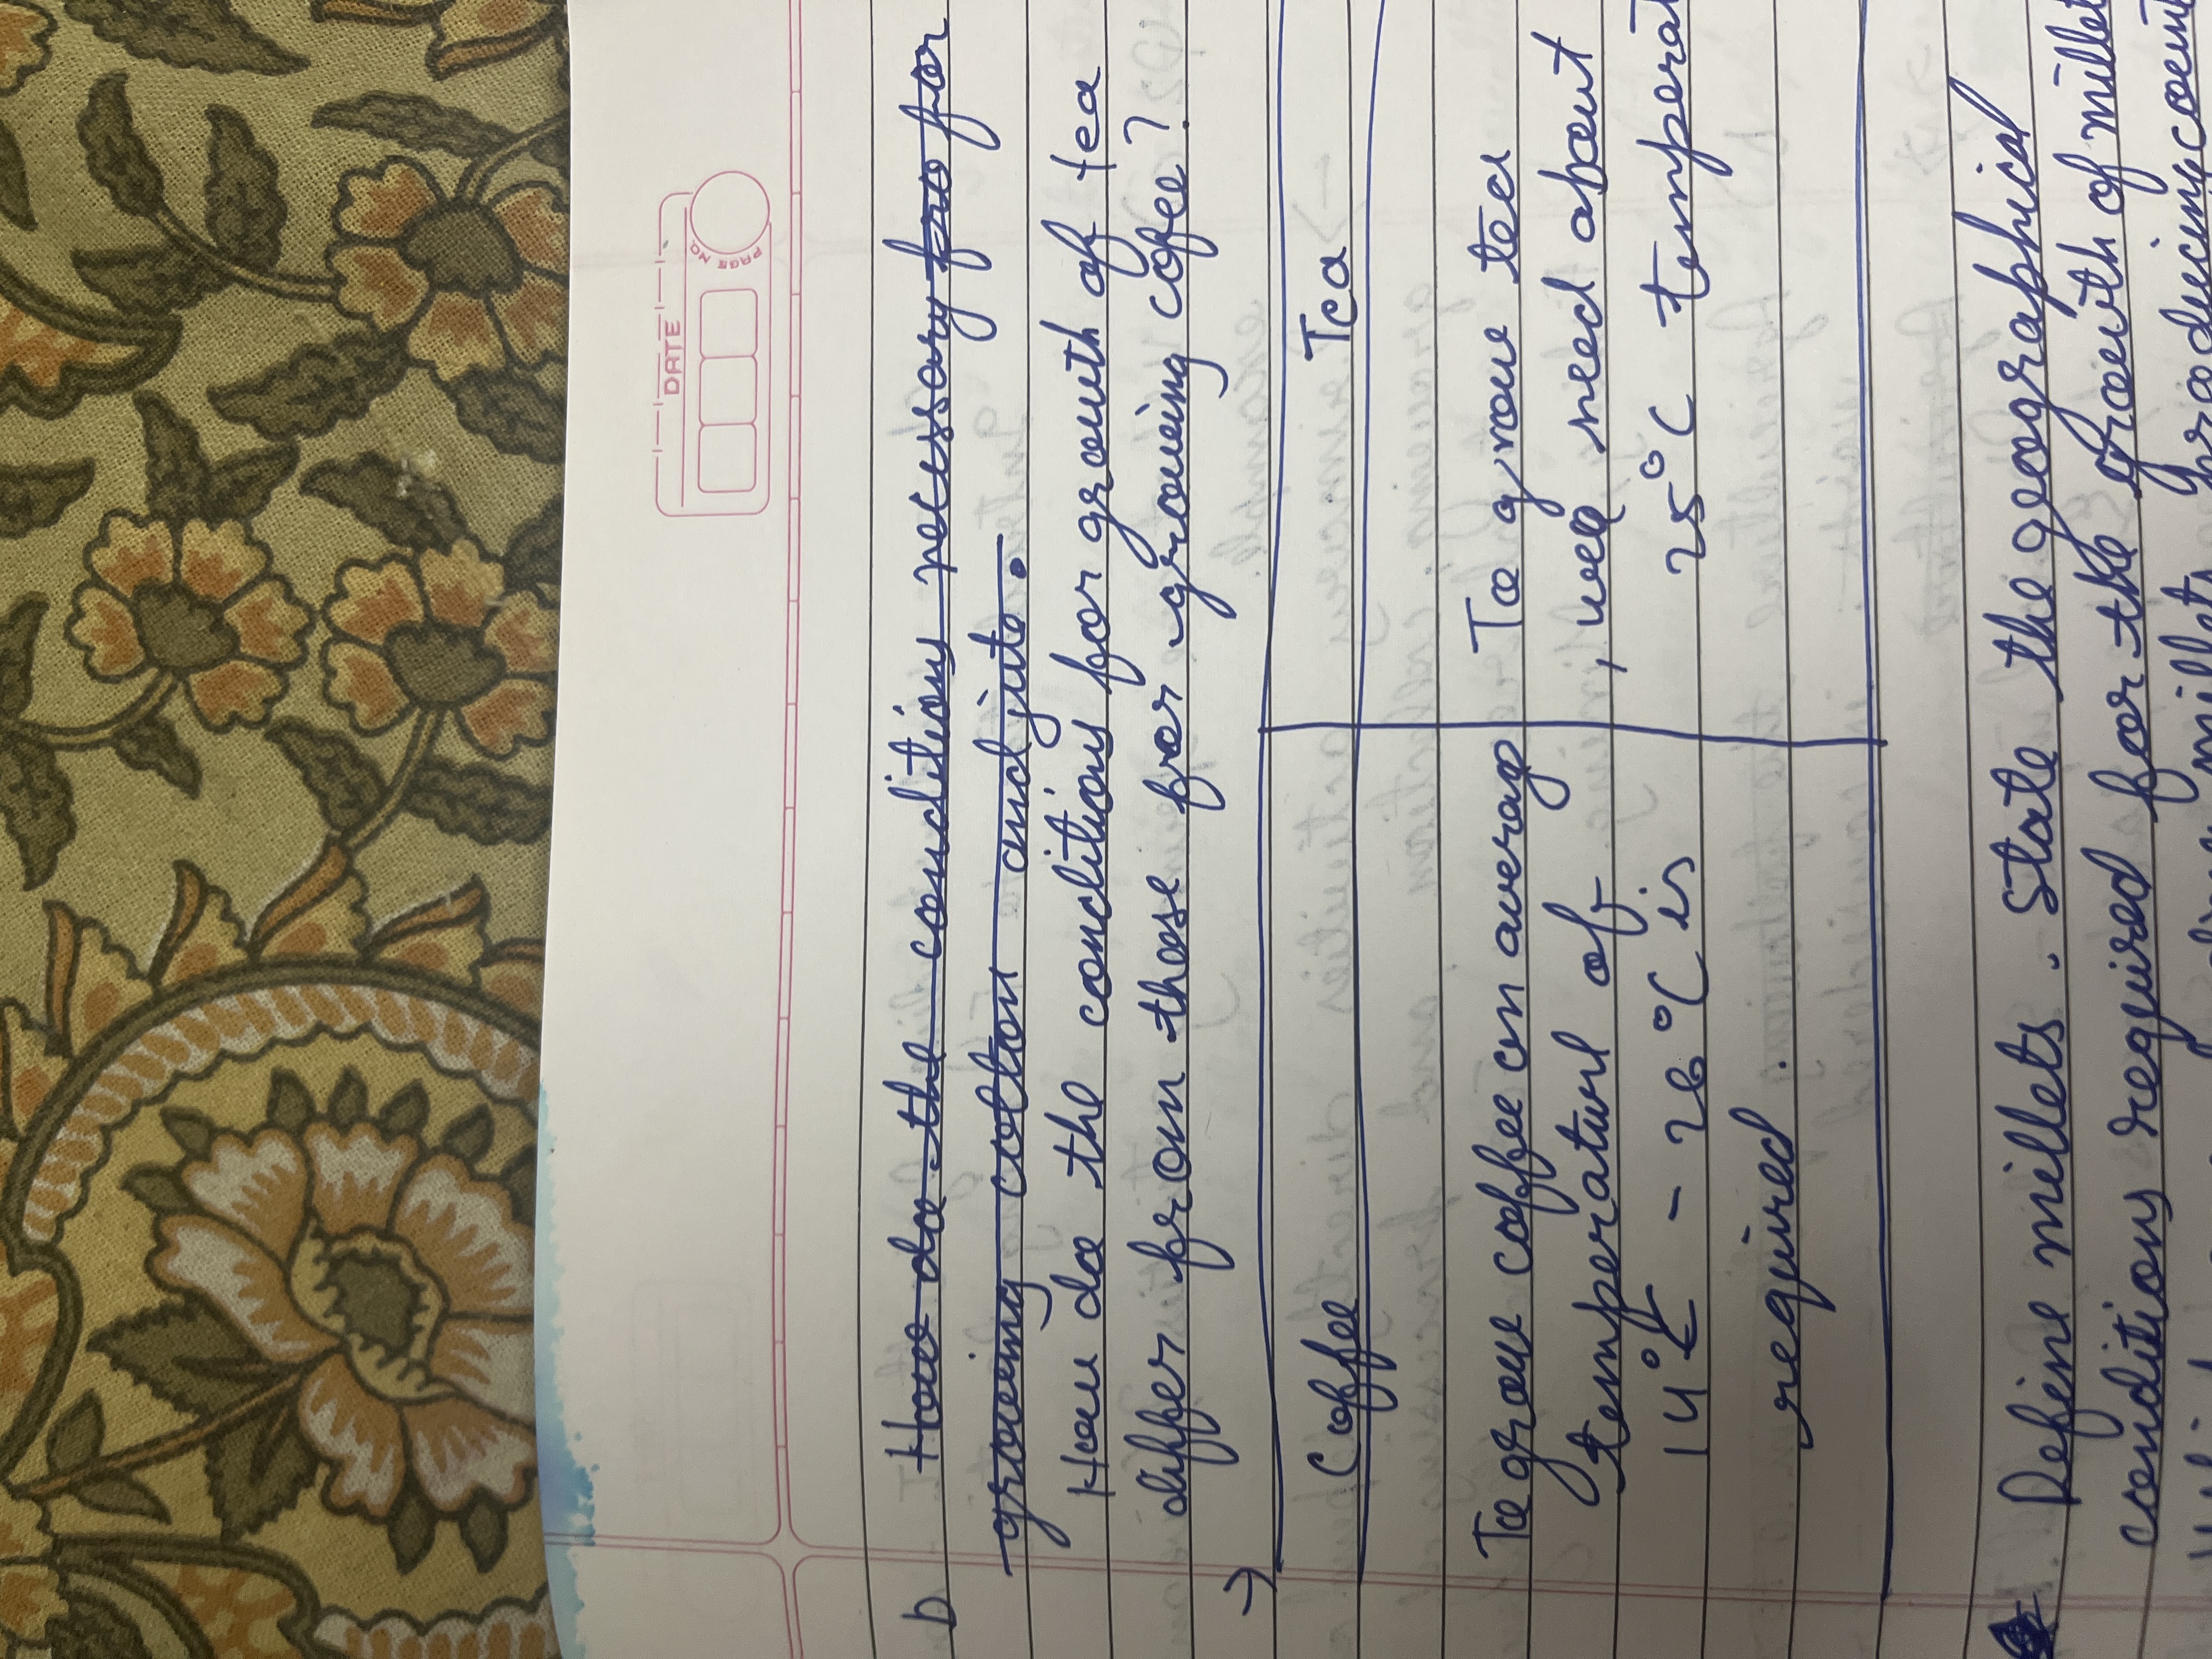 DATE
PAGE NO.
b How do the conditions necessary fro for
growing cotton and jute.
How do the conditions for growth of tea
differ from these for growing cofee?
→
Coffee Tea
To grow coffee on averag
temperature of
14°C - 26°C is
required.
To grow tea
, we need about
25°C temperat
Define millets. State the geographical
conditions required for the growth of millet